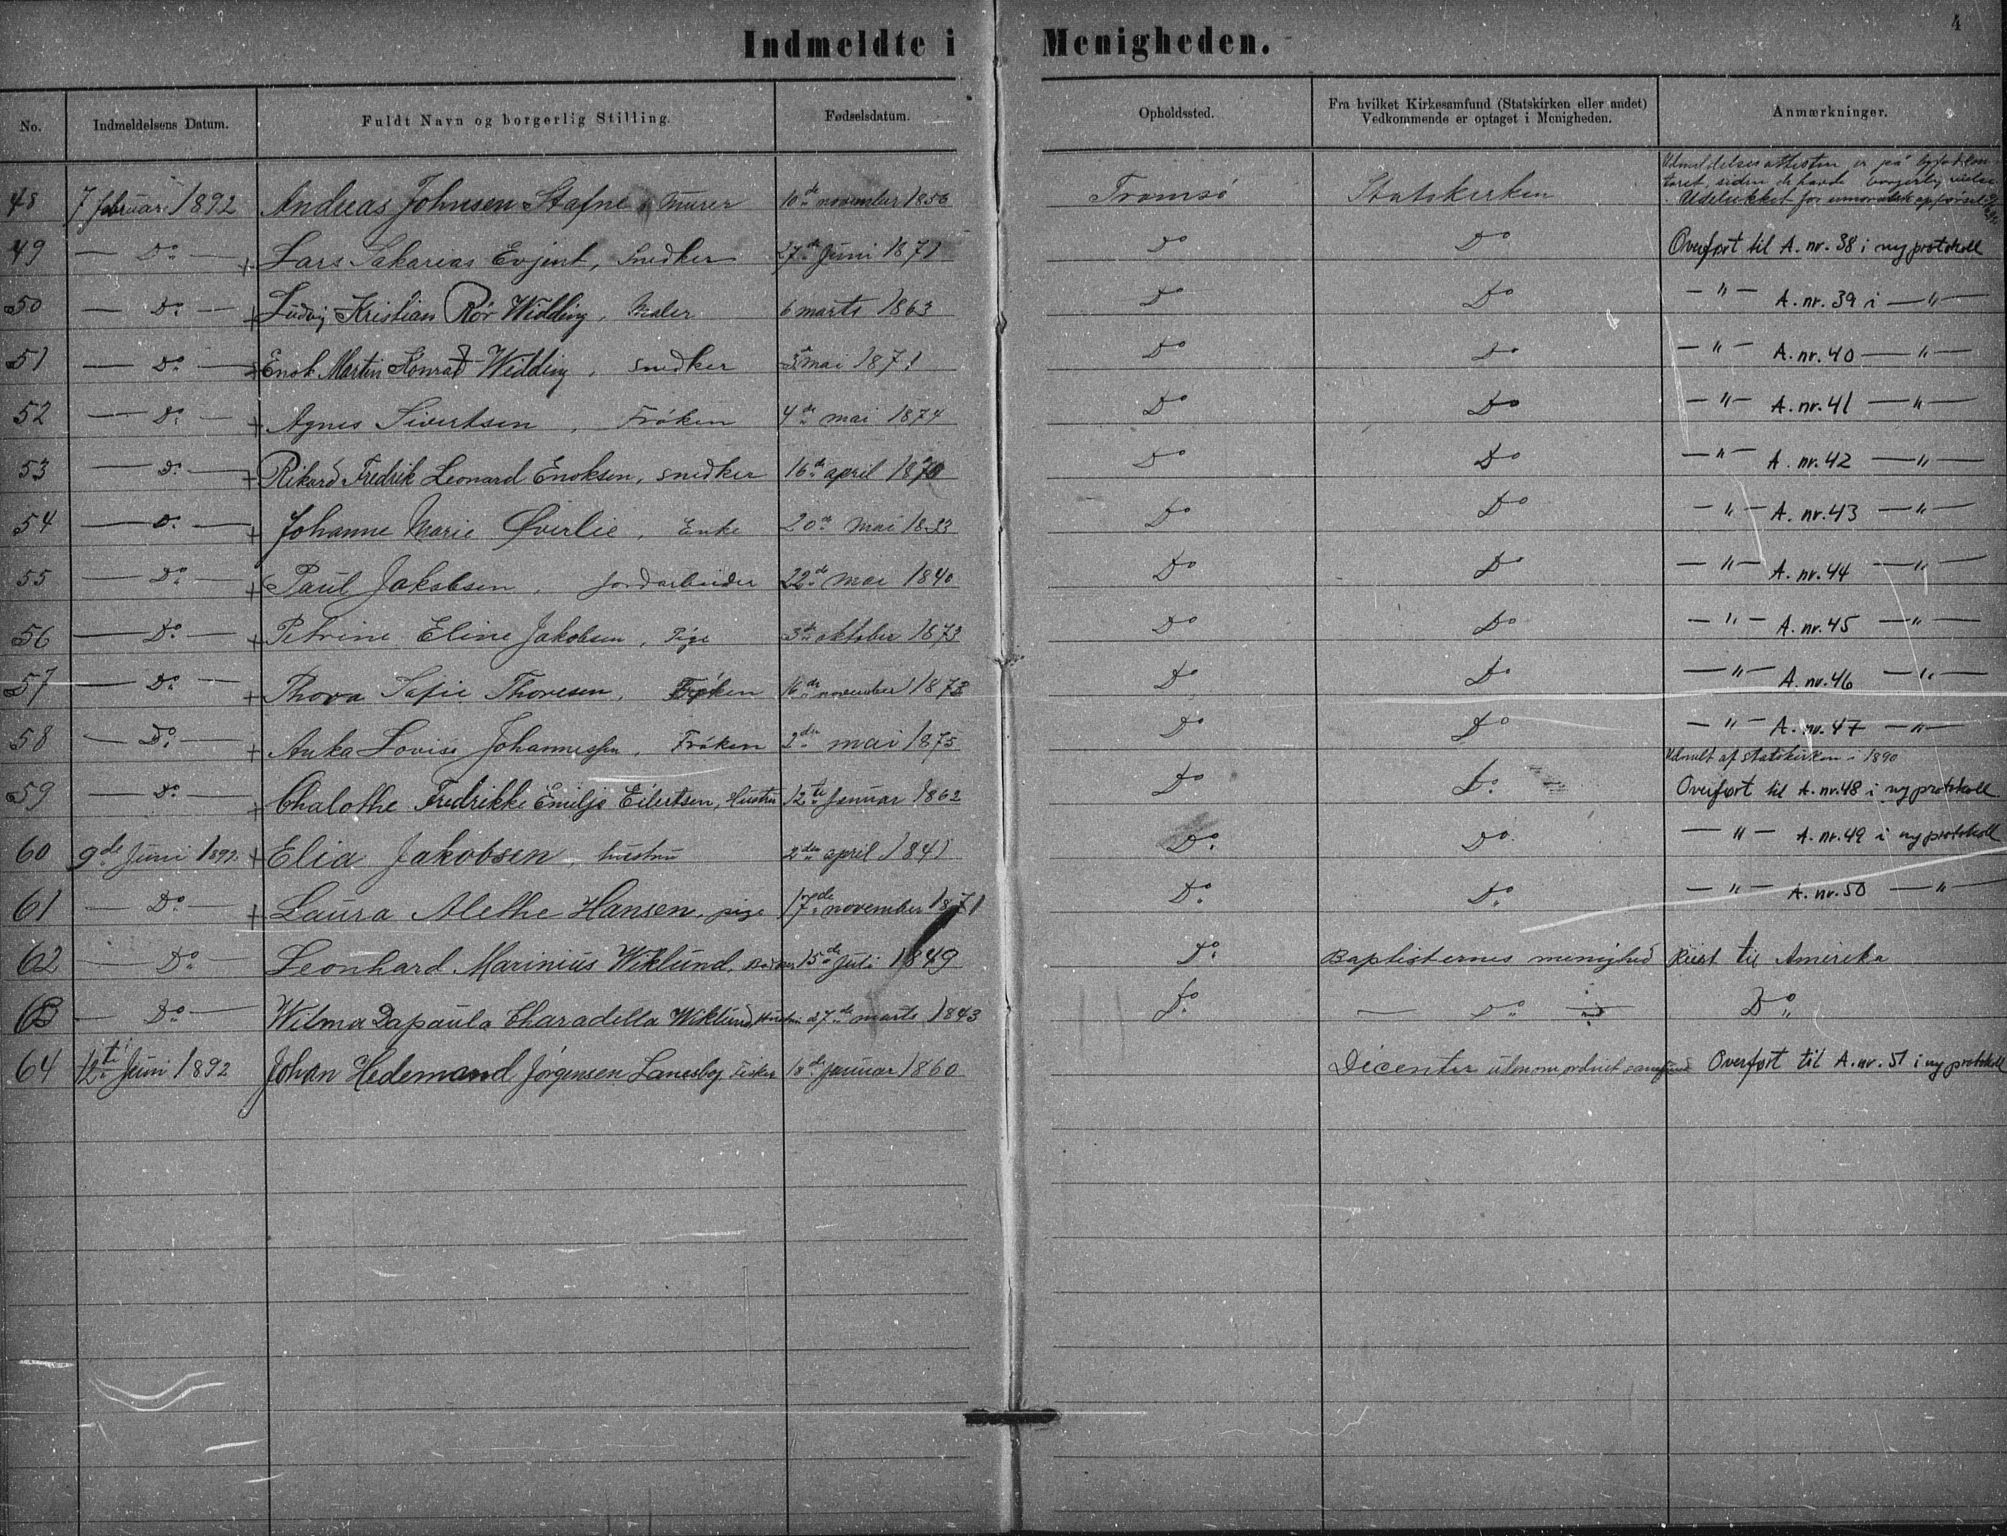 4
Indmeldte i Menigheden.
No. Indmeldelsens Datum. Fuldt Navn og borgerlig Stilling. Fødselsdatum. Opholdssted. Fra hvilket Kirkesamfund (Statskirken eller andet) Vedkommende er optaget i Menigheden. Anmærkninger.
Udmeldelsesattesten er på byfodkon-
toret, siden de havde borgerlig vielse
48 7 februar 1892 Andreas Johnsen Stafne Murer 10de november 1856 Tromsø Statskirken Udelukket for umoralsk opførsel
49 — Do — + Lars Sakarias Evjent, Snedker 27de Juni 1871 Do Do Overført til A. nr. 38 i ny protokoll
50 — Do — + Ludvig Kristian Rør Widding, Maler 6 marts 1863 Do Do — " — A. nr. 39 i — " —
51 — Do — + Enok Martin Konrad Widding, snedker 3 mai 1871 Do Do — " — A. nr. 40 — " —
52 — Do — + Agnes Sivertsen, Frøken 4de mai 1874 Do Do — " — A. nr. 41 — " —
53 — Do — + Rikard Fredrik Leonard Enoksen, snedker 16de april 1870 Do Do — " — A. nr. 42 — " —
54 — Do — + Johanne Marie Øverlie, Enke 20de mai 1833 Do Do — " — A. nr. 43 — " —
55 — Do — + Paul Jakobsen, Jordarbeider 22de mai 1840 Do Do — " — A. nr. 44 — " —
56 — Do — + Petrine Eline Jakobsen, Pige 3de oktober 1873 Do Do — " — A. nr. 45 — " —
57 — Do — + Thova Sofie Thoresen, Frøken 16de november 1873 Do Do — " — A. nr. 46 — " —
58 — Do — + Anka Lovise Johannessen, Frøken 2den mai 1875 Do Do — " — A. nr. 47 — " —
Udmelt af Statskirken i 1890
59 — Do — + Chalothe Fredrikke Emilje Eilertsen, Hustru 12te Januar 1862 Do Do Overført til A. nr. 48 i ny protokoll.
60 9de Juni 1892 + Elia Jakobsen, hustru 2den april 1841 Do Do — " — A. nr. 49 i ny protokoll
61 — Do — + Laura Alethe Hansen, pige 17de november 1871 Do Do — " — A. nr. 50 — " —
62 — Do — Leonhard Marinius Wiklund, 15de Juli 1849 Do Baptisternes menighed Reist til Amerika
63 — Do — Wilma Dapaula Charadella Wiklund, Hustru 27de marts 1843 Do — Do — Do
64 12te Juni 1892 Johan Hedemand Jørgensen Lanesbog Fisker 18de Januar 1860 Dicenter utenom ordnet samfund Overført til A. nr. 51 i ny protokoll